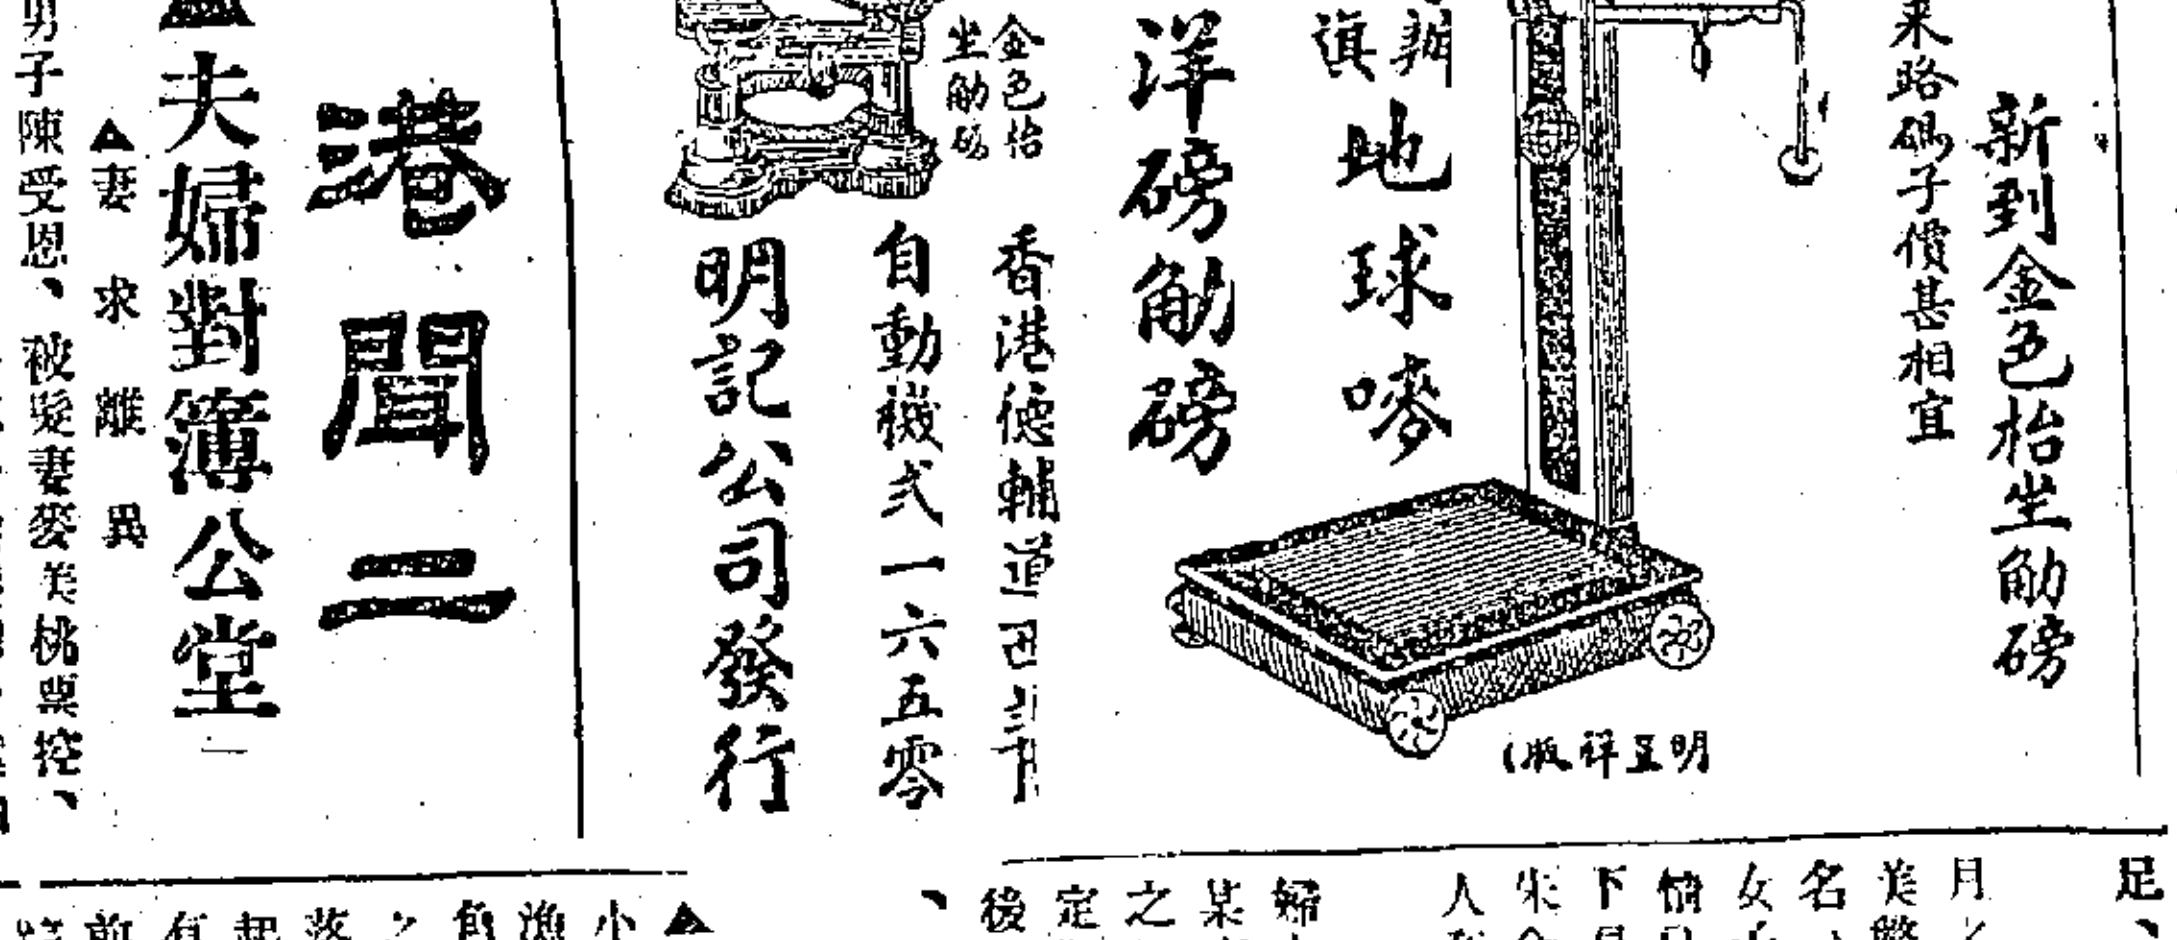 新到金色枱坐觔磅
來路碼子價甚相宜
明昱祥版
辦地球嘜
洋磅觔磅
金色枱
坐觔磅
香港德輔道
自動機弍一六五零
明記公司發行
港聞二
夫婦對簿公堂
▲妻求離異
男子陳受恩、被髮妻麥美桃票控、
足、
月
美
名
女
下
人
婦
某
之
定
後
、
▲
小
漁
落
起
有
前